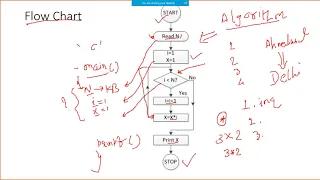 Flow Chart
START
Read N
I=1
X=1
I < N?
No
Yes
I=I+1
X=X*I
Print X
STOP
Algorithm
1
2
3
4
Ahmedabad
Delhi
1. inq
2.
3.
3×2
3*2
'c'
main()
N → KB
i = 1
x = 1
printf()